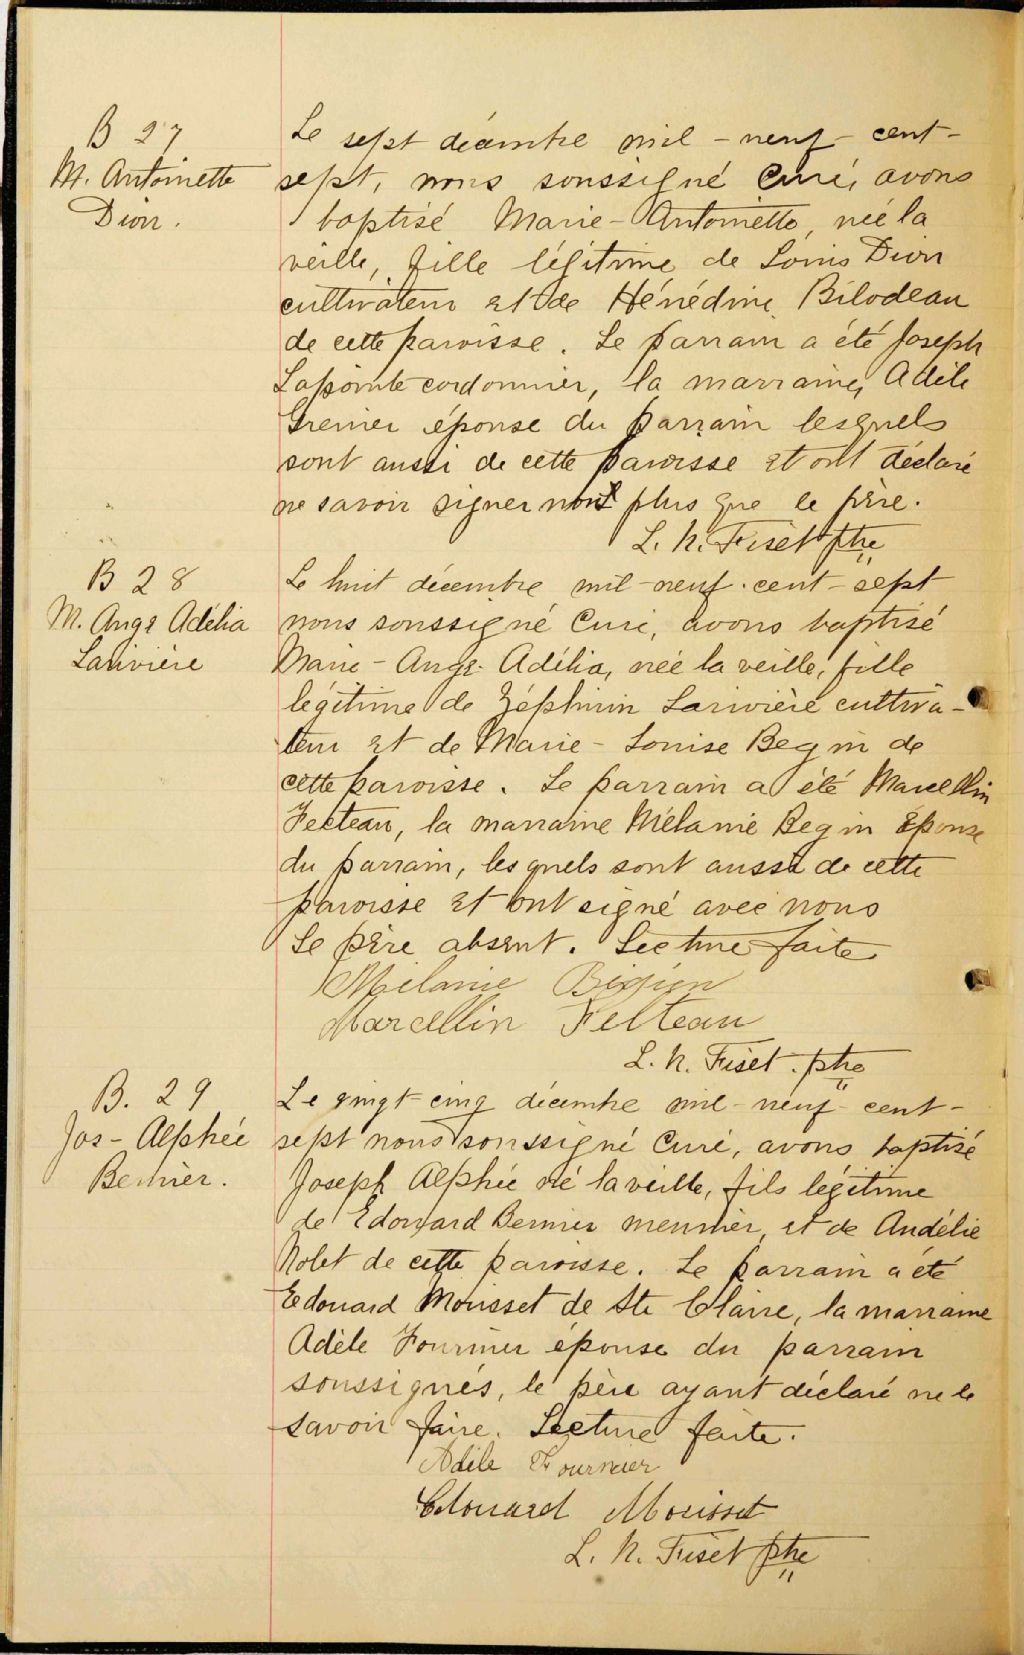 B 27
M. Antoinette
Dion.
Le sept décembre mil-neuf-cent-
sept, nous soussigné Curé, avons
baptisé Marie-Antoinette, née la
veille, fille légitime de Louis Dion
cultivateur et de Hénédine Bilodeau
de cette paroisse. Le parrain a été Joseph
Lapointe cordonnier, la marraine, Adèle
Grenier épouse du parrain lesquels
sont aussi de cette paroisse et ont déclaré
ne savoir signer non plus que le père.
L. N. Fiset ptre
B 28
M. Ange Adélia
Larivière
Le huit décembre mil-neuf-cent-sept
nous soussigné Curé, avons baptisé
Marie-Ange-Adélia, née la veille, fille
légitime de Zéphirin Larivière cultiva-
teur et de Marie-Louise Begin de
cette paroisse. Le parrain a été Marcellin
Fecteau, la marraine Mélanie Begin épouse
du parrain, lesquels sont aussi de cette
paroisse et ont signé avec nous
Le père absent. Lecture faite
Mélanie Bégin
Marcellin Felteau
L. N. Fiset. ptre
B. 29
Jos-Alphée
Bernier.
Le vingt-cinq décembre mil-neuf-cent-
sept nous soussigné Curé, avons baptisé
Joseph Alphée né la veille, fils légitime
de Edouard Bernier meunier, et de Audélie
Nolet de cette paroisse. Le parrain a été
Edouard Morisset de Ste Claire, la marraine
Adèle Fournier épouse du parrain
soussignés, le père ayant déclaré ne le
savoir faire. Lecture faite.
Adèle Fournier
Edouard Morisset
L. N. Fiset ptre